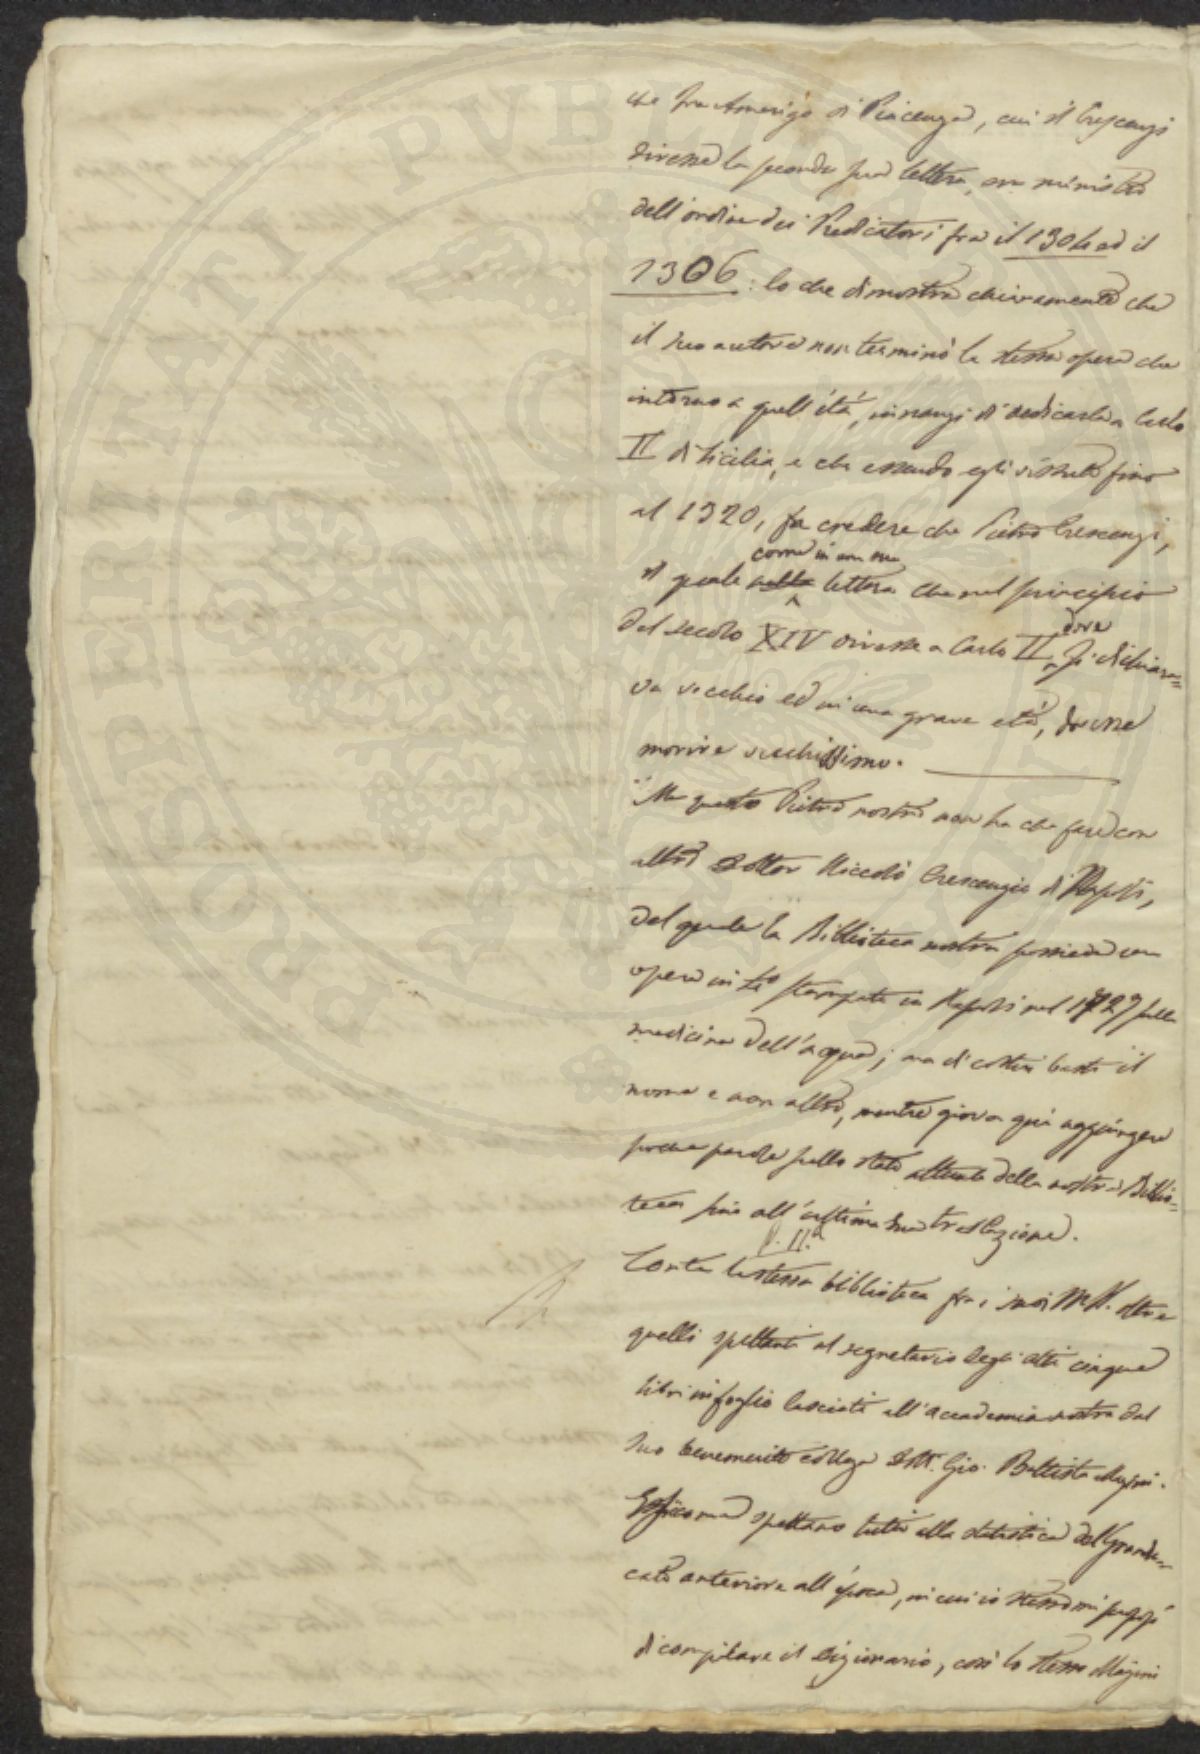 che fra Amerigo di Piacenza, cui il Crescenzi
diresse la seconda sua lettera, era ministro
dell'ordine dei Predicatori fra il 1304 ed il
1306: lo che dimostra chiaramente che
il suo autore non terminò la stessa opera che
intorno a quell'età, innanzi di dedicarla a Carlo
II di Sicilia, e che essendo egli vissuto fino
al 1320, fa credere che Pietro Crescenzi,
come in una sua
il quale nella lettera che nel principio
dove
del secolo XIV diresse a Carlo II si dichiara=
va vecchio ed in una grave età, dovesse
morire vecchissimo.
Ma questo Pietro nostro non ha che fare con
altro Dottor Niccolò Crescenzio di Napoli,
del quale la Biblioteca nostra possiede una
opera in 4° stampata in Napoli nel 1727 sulla
medicina dell'acqua; ma di costui basti il
nome e non altro, mentre giova quì aggiungere
poche parole sullo stato attuale della nostra Biblio=
teca fino all'ultima sua traslazione.
P. II.
Conta la stessa biblioteca fra i suoi MSS. oltre
quelli spettanti al segretario degli atti cinque
libri in foglio lasciati all'accademia nostra dal
suo benemerito collega Dott. Gio. Battista
Essiccome spettano tutti alla statistica del Grandu=
cato anteriore all'epoca, in cui io stesso mi
di compilare il Dizionario, così lo stesso